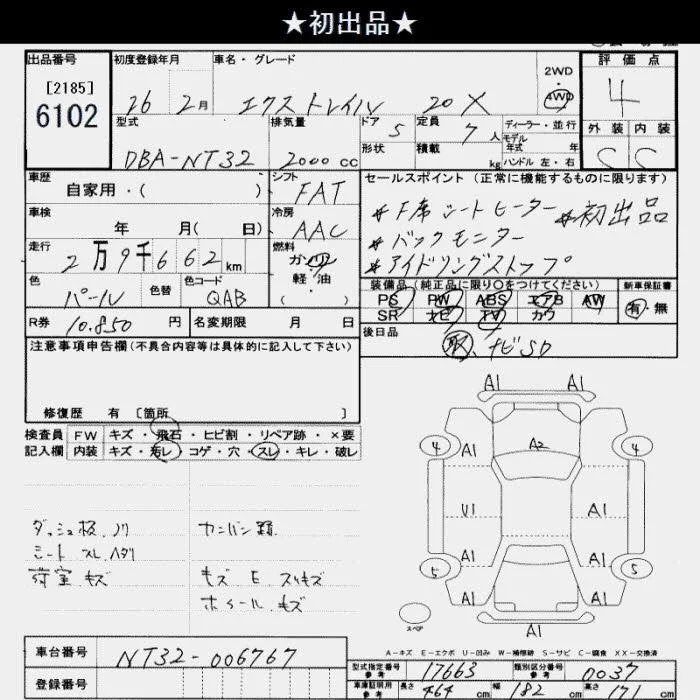 ★初出品★
出品番号 初度登録年月 車名・グレード 2WD 4WD 評価点
[2185]
6102
26年 2月 エクストレイル 20X 4
型式 排気量 ドア 定員 ディーラー・並行
DBA-NT32 2000 cc 5 7人 モデル年式 年
形状 積載 kg ハンドル 左・右
外装 内装
C C
車歴 シフト セールスポイント (正常に機能するものに限ります)
自家用・( ) FAT
車検 冷房
年 月( 日) AAC
*F席シートヒーター *初出品
*バックモニター
*アイドリングストップ
走行 燃料
2万9千662km ガソリン
軽・油
( )
色 色替 色コード
パール QAB
装備品 (純正品に限り○をつけてください) 新車保証書
PS PW ABS エアB AW 有・無
SR ナビ TV カワ
R券 10.850円 名変期限 月 日
後日品
取、ナビSD
注意事項申告欄(不具合内容等は具体的に記入して下さい)
修復歴 有 [箇所 ]
検査員 FW キズ・飛石・ヒビ割・リペア跡・×要
記入欄 内装 キズ・汚レ・コゲ・穴・スレ・キレ・破レ
ダッシュ板.ノリ カンバン類.
シート スレ.ヘタリ
荷室.キズ キズ E スリキズ
ホイール.キズ
A1 A1
4 A1 A2 4
U1 A1
A1 A1
5 5
A1 A1
A1
スペア
A-キズ E-エクボ U-凹み W-補修跡 S-サビ C-腐食 XX-交換済
車台番号 NT32-006767
登録番号
型式指定番号 参考 17663 類別区分番号 参考 0037
車庫証明用 参考 長さ 464 cm 幅 182 cm 高さ 171 cm